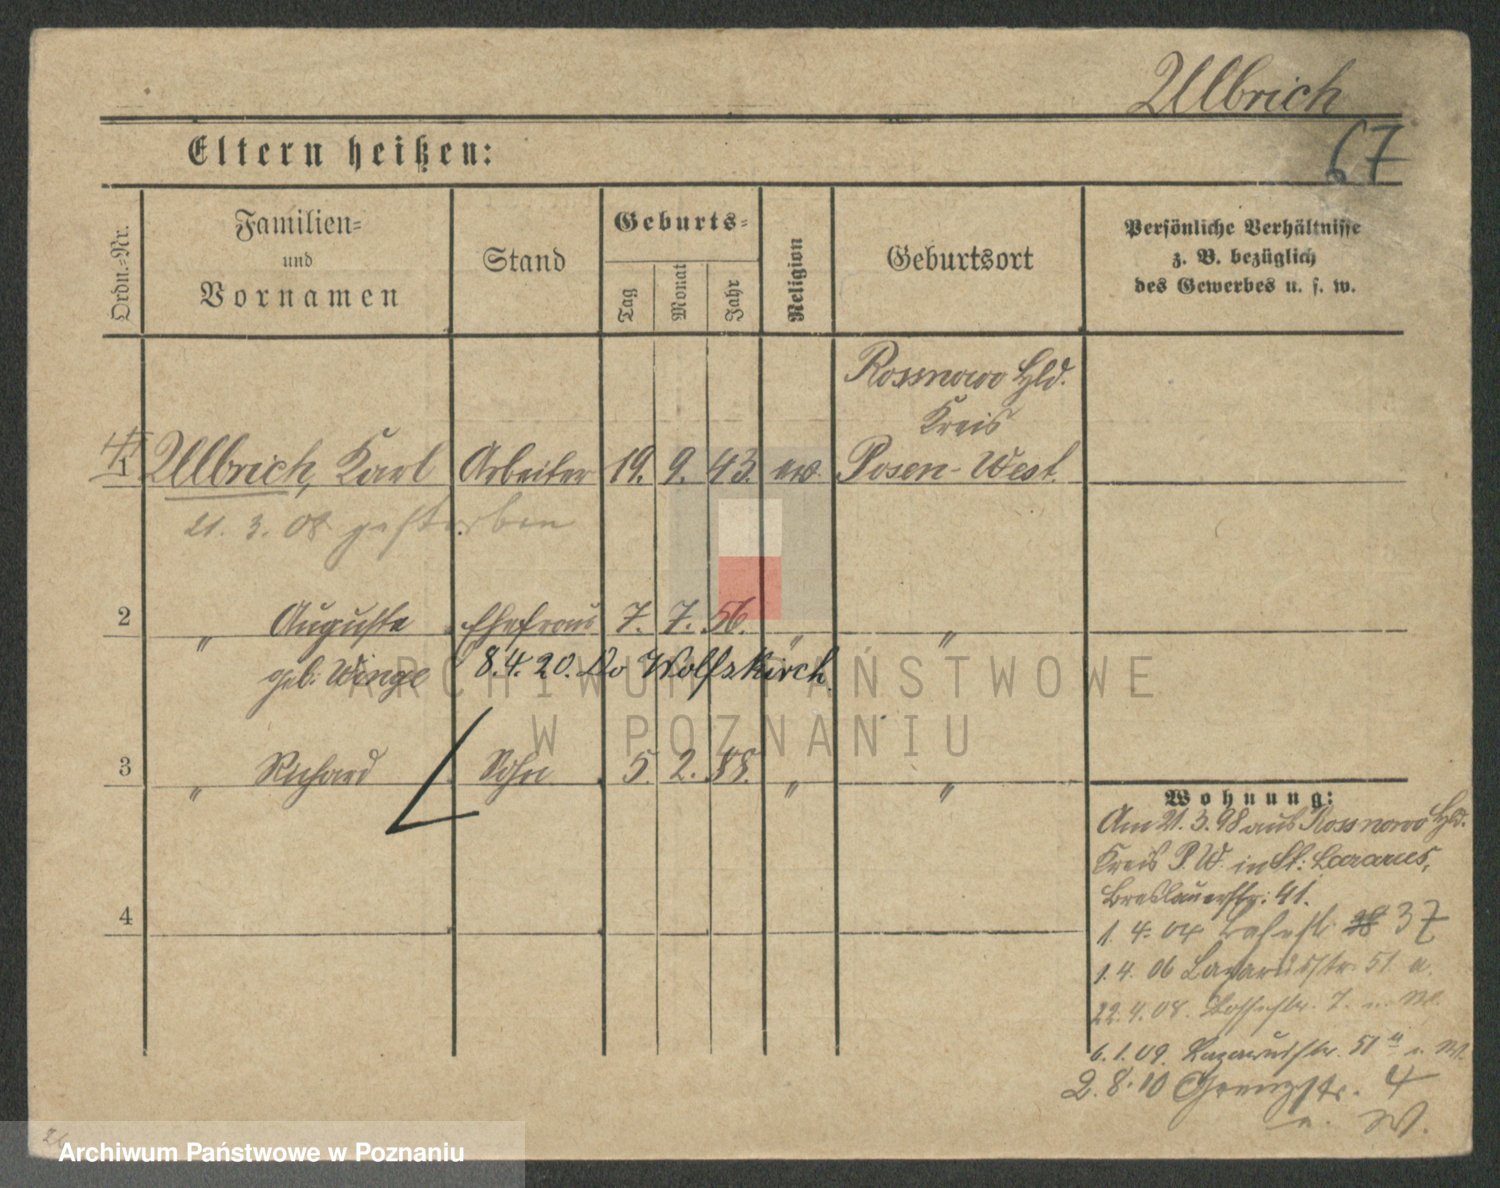 Ulbrich
67
Eltern heißen:
Ordn.-Nr.
Familien-
und
Vornamen
Stand
Geburts-
Tag
Monat
Jahr
Religion
Geburtsort
Persönliche Verhältnisse
z. B. bezüglich
des Gewerbes u. s. w.
Rossnowo Hld.
Kreis
1 Ulbrich, Karl Arbeiter 19. 9. 43. ev. Posen-West.
21. 3. 08 gestorben
2 " Auguste Ehefrau 7. 7. 56. " "
geb. Winge 8.4.20. Do Wolfskirch.
3 " Richard Sohn 5. 2. 88. " "
4
Wohnung:
Am 21.3.98 aus Rossnowo Hld.
Kreis P.W. in St. Lazarus,
Breslauerstr. 41.
1. 4. 04 37
1. 4. 06 Lazarusstr. 51 a.
22. 4. 08. 7. u. W.
6. 1. 09. Lazarusstr. 51 a u. W.
2. 8. 10 Grenzstr. 4
u. W.
ARCHIWUM PAŃSTWOWE
W POZNANIU
Archiwum Państwowe w Poznaniu